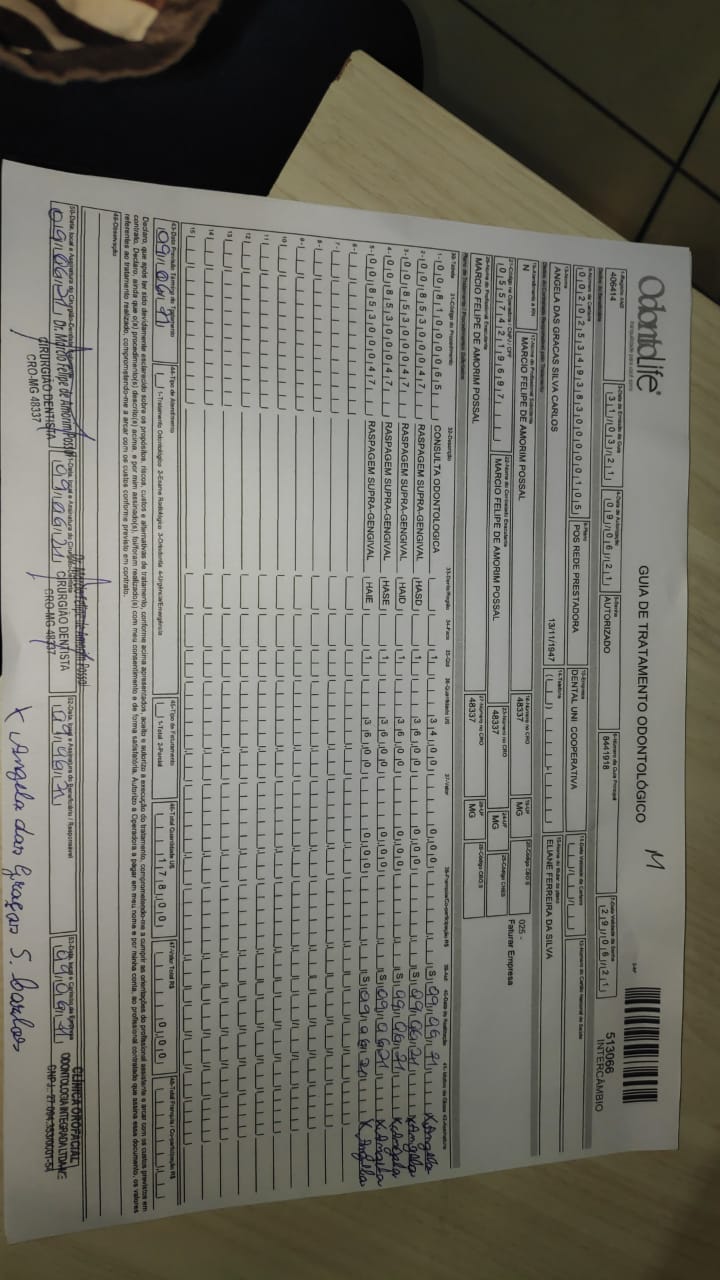 Odontolife
GUIA DE TRATAMENTO ODONTOLÓGICO
M
513066
INTERCÂMBIO
1-Registro ANS
406414
3-Data de Emissão da Guia
31/03/21
4-Data de Autorização
09/06/21
5-Senha
AUTORIZADO
6-Número da Guia Principal
8441918
7-Data Validade da Senha
29/06/21
8-Número da Carteira
00202534938300000105
9-Plano
POS REDE PRESTADORA
10-Empresa
DENTAL UNI COOPERATIVA
11-Data Validade da Carteira
12-Número do Cartão Nacional de Saúde
13-Nome
ANGELA DAS GRACAS SILVA CARLOS
13/11/1947
14-Telefone
15-Nome do titular do plano
ELIANE FERREIRA DA SILVA
16-Atendimento a RN
N
MARCIO FELIPE DE AMORIM POSSAL
18-Número no CRO
48337
19-UF
MG
20-Código CBO S
025 -
Faturar Empresa
21-Código na Operadora / CNPJ / CPF
05574211969 7
22-Nome do Contratado Executante
MARCIO FELIPE DE AMORIM POSSAL
23-Número no CRO
48337
24-UF
MG
25-Código CNES
26-Nome do Profissional Executante
MARCIO FELIPE DE AMORIM POSSAL
27-Número no CRO
48337
28-UF
MG
29-Código CBO S
30-Tabela 31-Código do Procedimento 32-Descrição 33-Dente/Região 34-Face 35-Qtd 36-Quantidade US 37-Valor 38-Franquia/Co-participação R$ 39-Aut 40-Data de Realização 41-Motivo da Glosa 42-Assinatura
1- 00 81000065 CONSULTA ODONTOLOGICA 1 34,00 0,00 S 09/06/21 X Angela
2- 00 85300047 RASPAGEM SUPRA-GENGIVAL HASD 1 36,00 0,00 S 09/06/21 X Angela
3- 00 85300047 RASPAGEM SUPRA-GENGIVAL HAID 1 36,00 0,00 S 09/06/21 X Angela
4- 00 85300047 RASPAGEM SUPRA-GENGIVAL HASE 1 36,00 0,00 S 09/06/21 X Angela
5- 00 85300047 RASPAGEM SUPRA-GENGIVAL HAIE 1 36,00 0,00 S 09/06/21 X Angela
6-
7-
8-
9-
10
11
12
13
14
15
43-Data Previsão Término do Tratamento
09/06/21
44-Tipo de Atendimento
1-Tratamento Odontológico 2-Exame Radiológico 3-Ortodontia 4-Urgência/Emergência
45-Tipo de Faturamento
1-Total 2-Parcial
46-Total Quantidade US
178,00
47-Valor Total R$
0,00
48-Total Franquia / Co-participação R$
Declaro, que após ter sido devidamente esclarecido sobre os propósitos, riscos, custos e alternativas de tratamento, conforme acima apresentados, aceito e autorizo a execução do tratamento, comprometendo-me a cumprir as orientações do profissional assistente e arcar com os custos previstos em
contrato. Declaro, ainda que o(s) procedimento(s) descrito(s) acima, e por mim assinado(s), foi/foram realizado(s) com meu consentimento e de forma satisfatória. Autorizo a Operadora a pagar em meu nome e por minha conta, ao profissional contratado que assina esse documento, os valores
referentes ao tratamento realizado, comprometendo-me a arcar com os custos conforme previsto em contrato.
49-Observação
09/06/21
Dr. Marcio Felipe de Amorim Possal
CIRURGIÃO DENTISTA
CRO-MG 48337
09/06/21
Dr. Marcio Felipe de Amorim Possal
CIRURGIÃO DENTISTA
CRO-MG 48337
52-Data, local e Assinatura do Beneficiário / Responsável
09/06/21
X Angela das Graças S. Carlos
53-Data, local e Carimbo da Empresa
09/06/21
CLÍNICA OROFACIAL
ODONTOLOGIA INTEGRADA LTDA ME